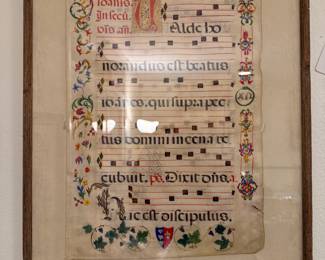 ioanis.
In secu
Alde ho
norandus est beatus
ioānes. qui supra pec
tus domini in cena re
cubuit. ps. Dixit dñs. a.
Hic est discipulus.